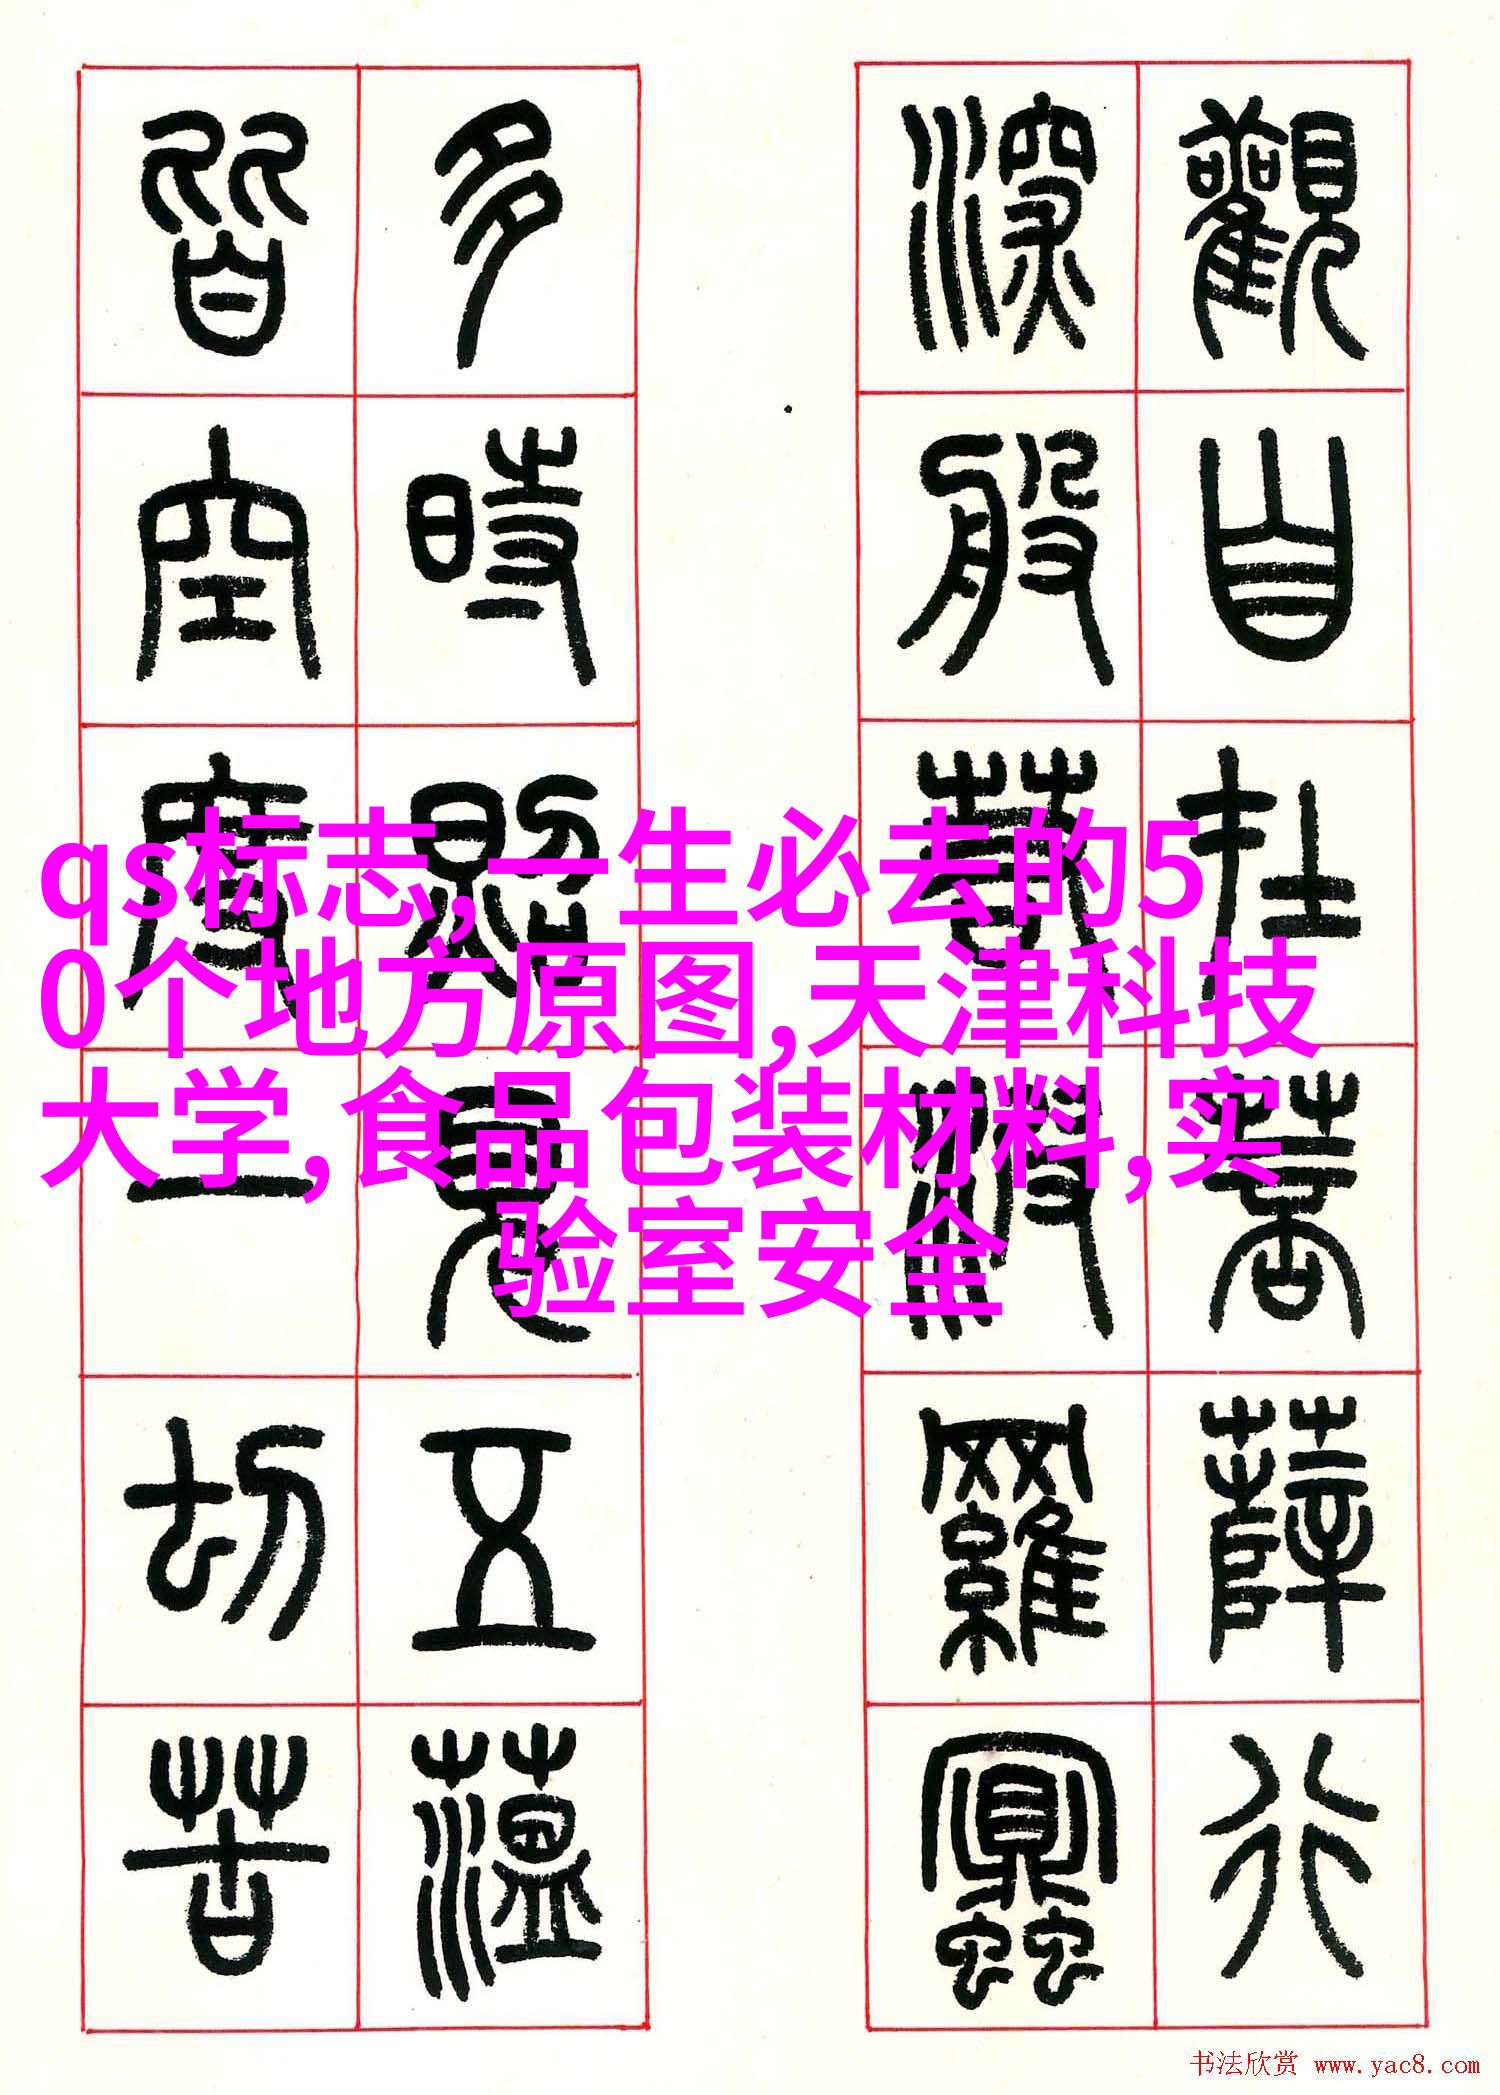 觀自在菩薩行
深般若波羅蜜
多時照見五蘊
皆空度一切苦
qs标志,一生必去的5
0个地方原图,天津科技
大学,食品包装材料,实
验室安全
书法欣赏 www.yac8.com